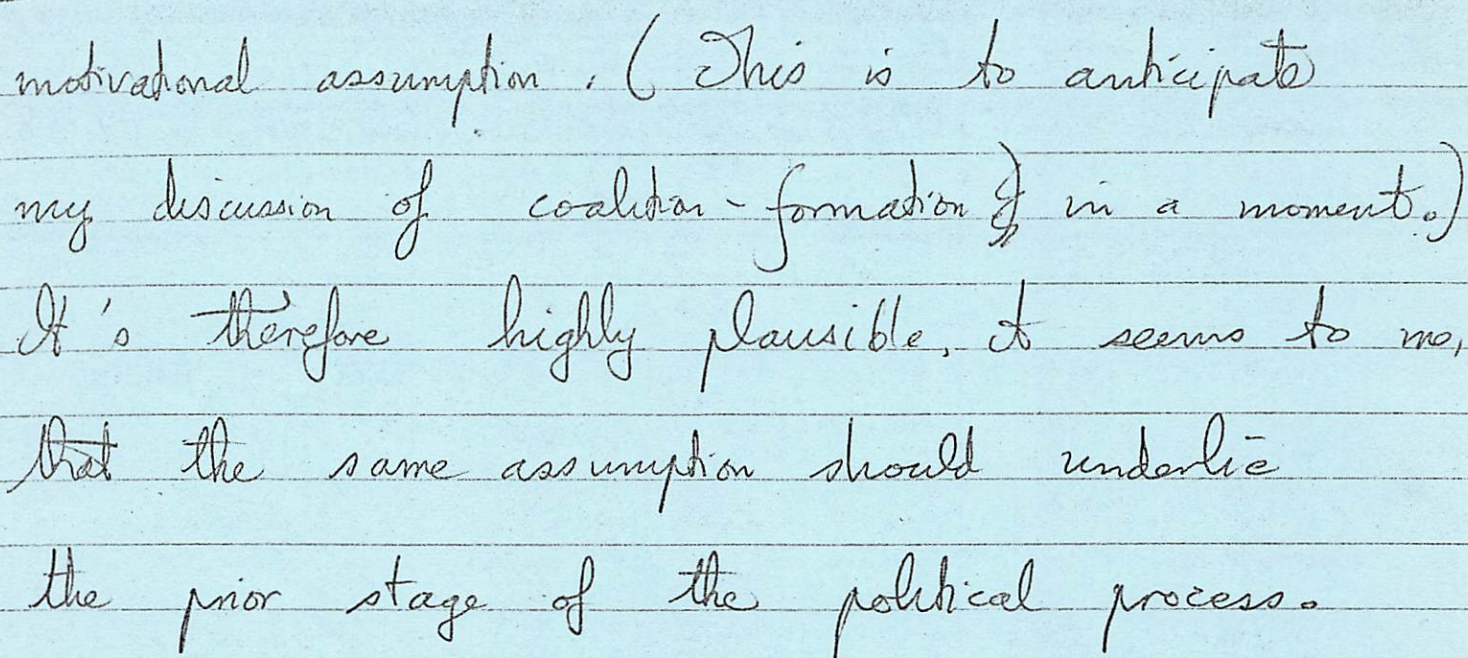 motivational assumption. (This is to anticipate
my discussion of coalition-formation in a moment.)
It's therefore highly plausible, it seems to me,
that the same assumption should underlie
the prior stage of the political process.